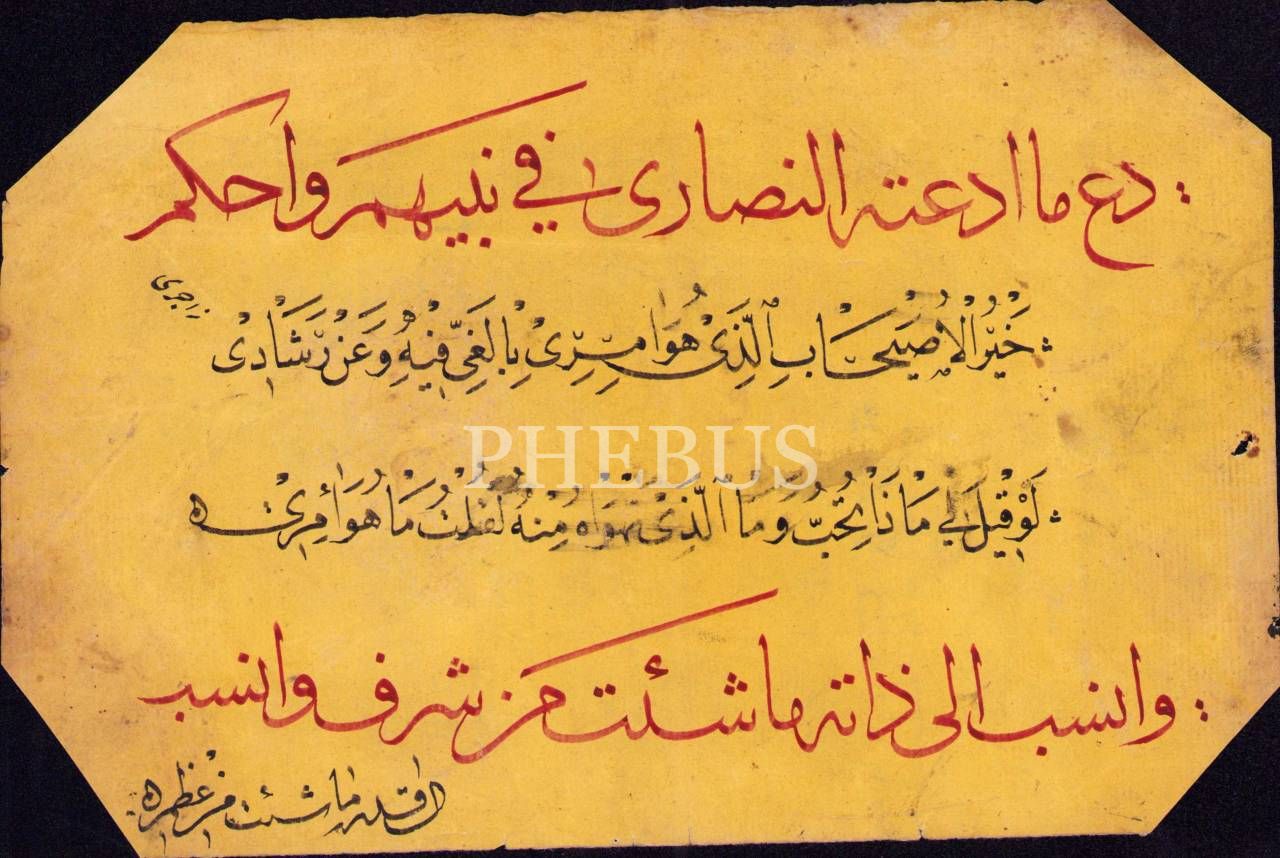 دع ما ادعته النصارى في نبيهم واحكم
خَيْرُ الْاُصَيْحَابِ الَّذِىْ هُوَ اٰمِرِىْ بِالْغَىِّ فِيْهِ وَعَنْ رَشَادِىْ
زاجرى
PHEBUS
لَوْ قِيْلَ لِىْ مَاذَا تُحِبُّ وَمَا الَّذِىْ تَهْوَاهُ مِنْهُ لَقُلْتُ مَا هُوَ اٰمِرِىْ
وانسب الى ذاته ما شئت من شرف وانسب
الى قدره ما شئت من عظم